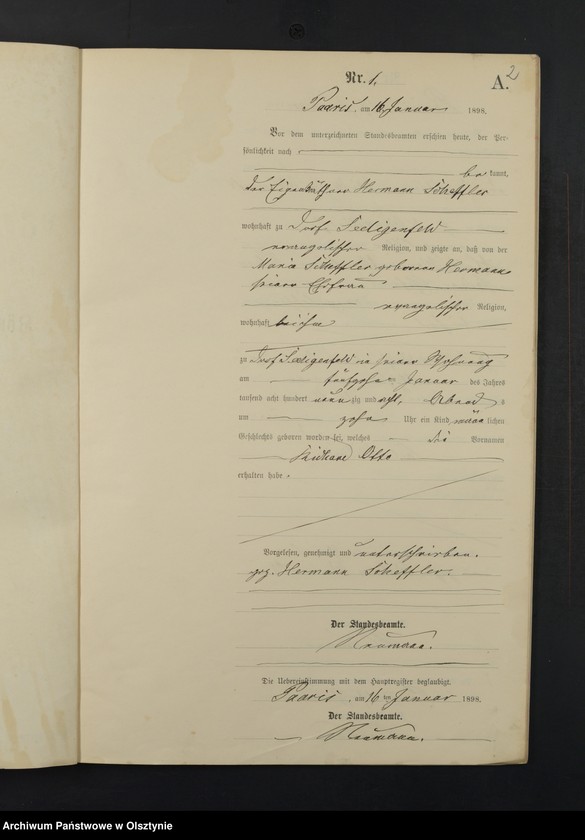 2
Nr. 1.
A.
Paaris, am 16 Januar 1898.
Vor dem unterzeichneten Standesbeamten erschien heute, der Per-
sönlichkeit nach
be kannt,
der Eigenkäthner Hermann Scheffler
wohnhaft zu Dorf Seeligenfeld
evangelischer Religion, und zeigte an, daß von der
Maria Scheffler geborenen Hermann
seiner Ehefrau
evangelischer Religion,
wohnhaft bei ihm
zu Dorf Seeligenfeld in seiner Wohnung
am fünfzehnten Januar des Jahres
tausend acht hundert neun zig und acht, Abend s
um zehn Uhr ein Kind männ lichen
Geschlechts geboren worden sei, welches die Vornamen
Richard Otto
erhalten habe.
Vorgelesen, genehmigt und unterschrieben.
gez. Hermann Scheffler.
Der Standesbeamte.
Naumann.
Die Uebereinstimmung mit dem Hauptregister beglaubigt.
Paaris, am 16 ten Januar 1898.
Der Standesbeamte.
Naumann.
Archiwum Państwowe w Olsztynie